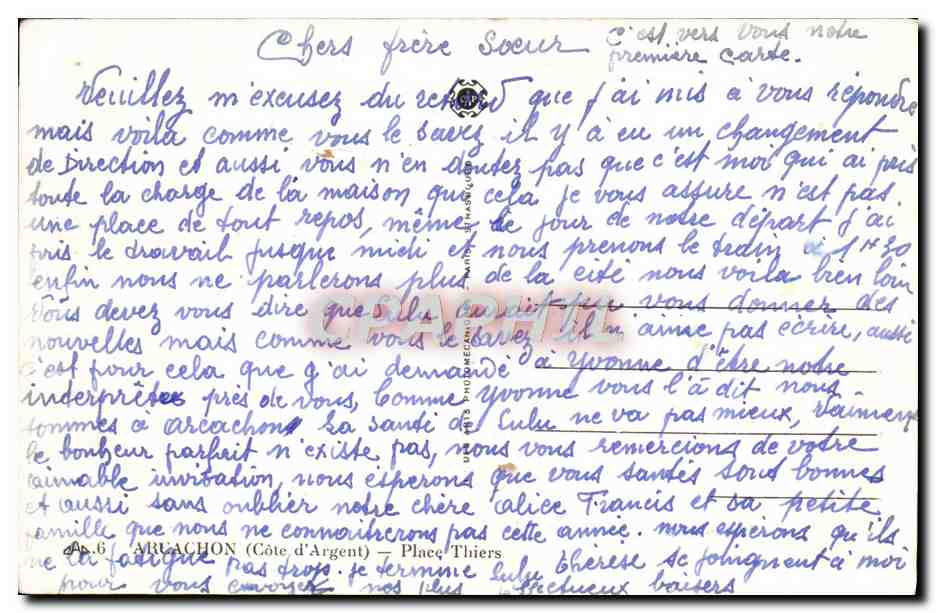 Chers frère Soeur
C'est vers vous notre
première carte.
Veuillez m'excusez du retard que j'ai mis à vous répondre
mais voila comme vous le savez il y à eu un changement
de Direction et aussi vous n'en doutez pas que c'est moi qui ai pris
toute la charge de la maison que cela je vous assure n'est pas
une place de tout repos, même le jour de notre départ j'ai
pris le travail jusque midi et nous prenons le train à 1H30
enfin nous ne parlerons plus de la cité nous voila bien loin
Vous devez vous dire que Lulu aurait pu vous donner des
nouvelles mais comme vous le savez il n'aime pas écrire, aussi
c'est pour cela que g'ai demandé à Yvonne d'être notre
interprêtes près de vous, Comme Yvonne vous l'à dit nous
sommes à Arcachon La santé de Lulu ne va pas mieux,
le bonheur parfait n'existe pas, nous vous remercions de votre
aimable invitation, nous esperons que vous santés sont bonnes
et aussi sans oublier notre chère Alice Francis et sa petite
famille que nous ne connaiterons pas cette année. nous espérons qu'ils
A. 6 ARCACHON (Côte d'Argent) — Place Thiers
ne la fatigue pas trop. je termine Lulu Thérèse se joingnent à moi
pour vous envoyer nos plus affectueux baisers
PHOTOMECANIQUES PARIS STRASBOURG
CPAPHIL